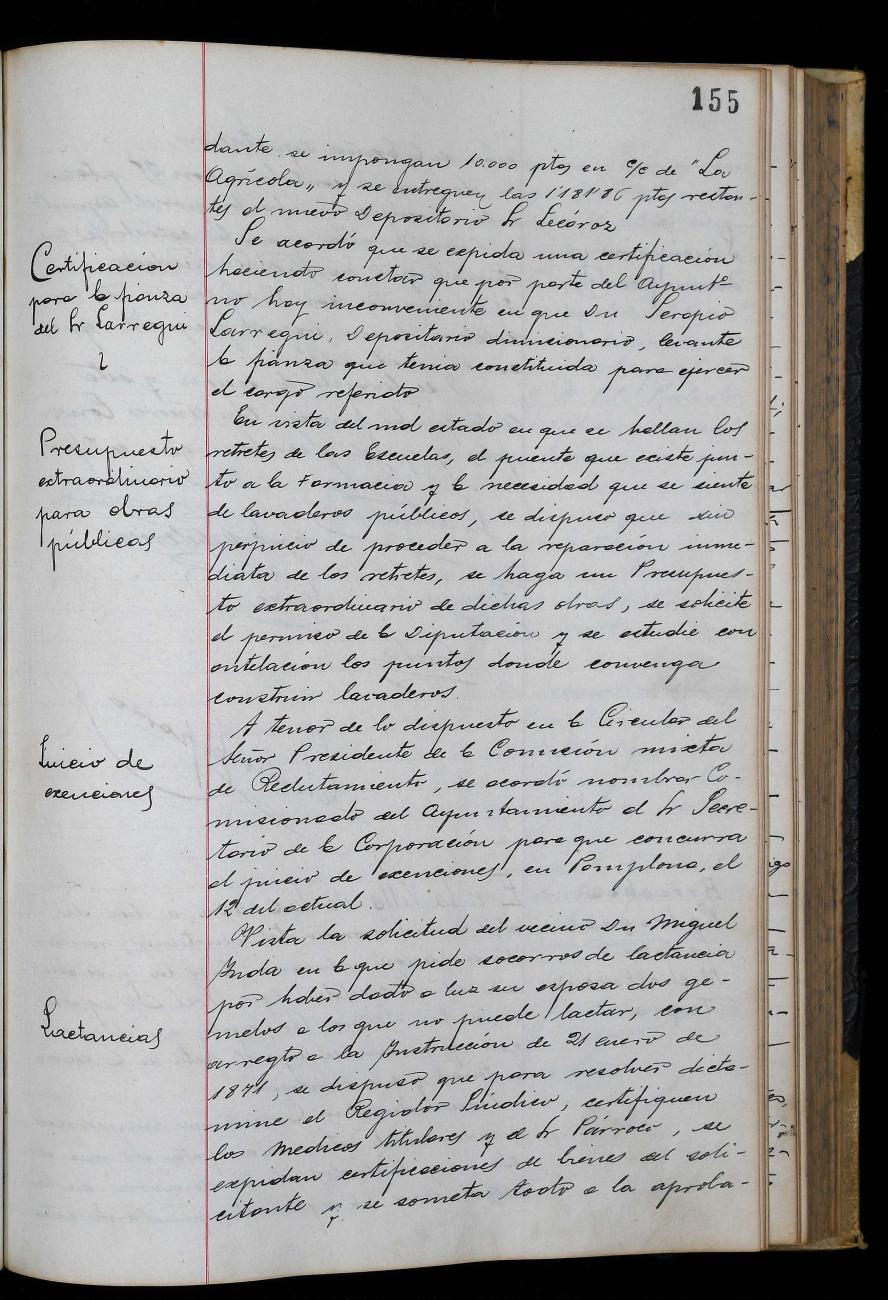 155
dante se impongan 10.000 ptas en c/c de "La
Agrícola" y se entreguen las 1181'86 ptas restan-
tes al nuevo Depositario Sr Lecároz
Certificación
para la fianza
del Sr Larregui
Se acordó que se expida una certificación
haciendo constar que por parte del Ayuntº
no hay inconveniente en que Dn Serapio
Larregui, Depositario dimisionario, levante
la fianza que tenia constituida para ejercer
el cargo referido
Presupuesto
extraordinario
para obras
públicas
En vista del mal estado en que se hallan los
retretes de las Escuelas, el puente que existe jun-
to a la Farmacia y la necesidad que se siente
de lavaderos públicos, se dispuso que sin
perjuicio de proceder a la reparación inme-
diata de los retretes, se haga un Presupues-
to extraordinario de dichas obras, se solicite
el permiso de la Diputación y se estudie con
antelación los puntos donde convenga
construir lavaderos.
Juicio de
exenciones
A tenor de lo dispuesto en la Circular del
Señor Presidente de la Comisión mixta
de Reclutamiento, se acordó nombrar Co-
misionado del Ayuntamiento al Sr Secre-
tario de la Corporación para que concurra
al juicio de exenciones, en Pamplona, el
12 del actual.
Lactancias
Vista la solicitud del vecino Dn Miguel
Inda en la que pide socorros de lactancia
por haber dado a luz su esposa dos ge-
melos a los que no puede lactar, con
arreglo a la Instrucción de 21 enero de
1871, se dispuso que para resolver dicta-
mine el Regidor Síndico, certifiquen
los Medicos titulares y el Sr Párroco, se
expidan certificaciones de bienes del soli-
citante y se someta todo a la aproba-